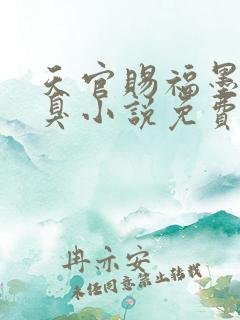 天官赐福墨
真小说免费
冉亦安
未经同意禁止转载